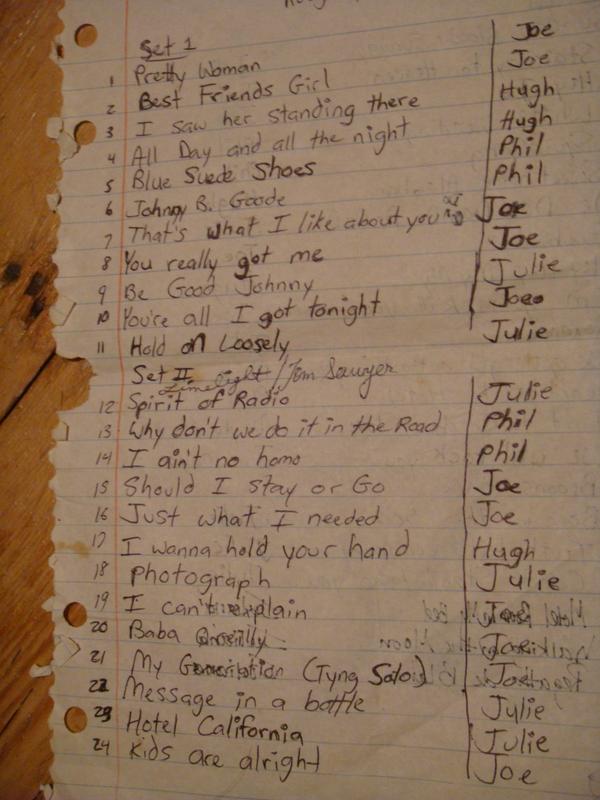 Set 1
1 Pretty Woman Joe
2 Best Friends Girl Joe
3 I saw her standing there Hugh
4 All Day and all the night Hugh
5 Blue Suede Shoes Phil
6 Johnny B. Goode Phil
7 That's what I like about you Joe
8 You really got me Joe
9 Be Good Johnny Julie
10 You're all I got tonight Joe
11 Hold on Loosely Julie
Set II Limelight / Tom Sawyer
12 Spirit of Radio Julie
13 Why don't we do it in the Road Phil
14 I ain't no homo Phil
15 Should I stay or Go Joe
16 Just what I needed Joe
17 I wanna hold your hand Hugh
18 Photograph Julie
19 I can't explain
20 Baba
21 My (Tyng Solo) Joe
22 Message in a bottle Julie
23 Hotel California Julie
24 Kids are alright Joe